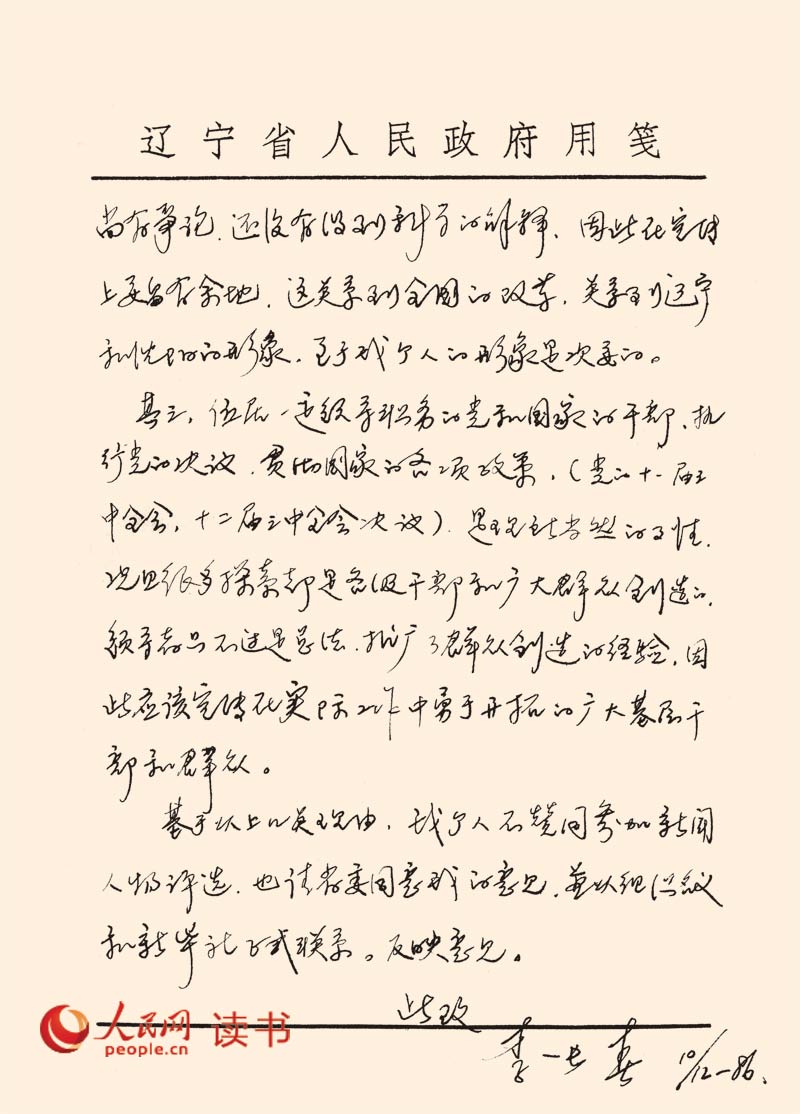 辽宁省人民政府用笺
尚存争论，还没有得到科学的解释，因此在宣传
上要留有余地，这关系到全国的改革，关系到辽宁
和沈阳的形象，至于我个人的形象是次要的。
其三，作为一个领导职务的党和国家的干部，执
行党的决议，贯彻国家的各项政策，（党的十一届三
中全会，十二届三中全会决议），是理所当然的事情，
况且很多探索都是各级干部和广大群众创造的，
领导者只不过是总结、推广了群众创造的经验，因
此应该宣传在实际工作中勇于开拓的广大基层干
部和群众。
基于以上几点理由，我个人不赞同参加新闻
人物评选，也请省委同意我的意见，并以组织名义
和新华社正式联系。反映意见。
此致
李长春 10/12-86.
人民网 读书
people.cn